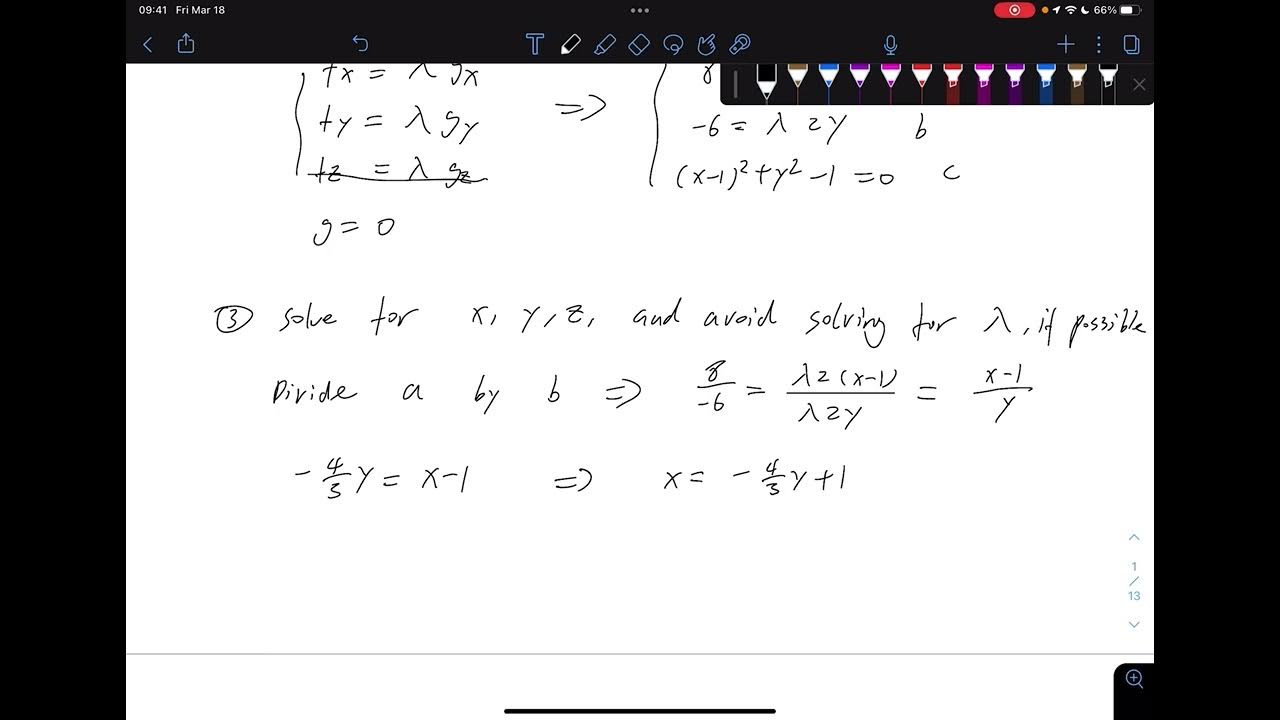 09:41 Fri Mar 18
66%
T
fx = λ gx
fy = λ gy ⇒ -6 = λ 2y b
fz = λ gz (x-1)² + y² - 1 = 0 c
g = 0
③ solve for x, y, z, and avoid solving for λ, if possible
Divide a by b ⇒ 8/-6 = λ2(x-1)/λ2y = x-1/y
-4/3 y = x-1 ⇒ x = -4/3 y + 1
1
/
13